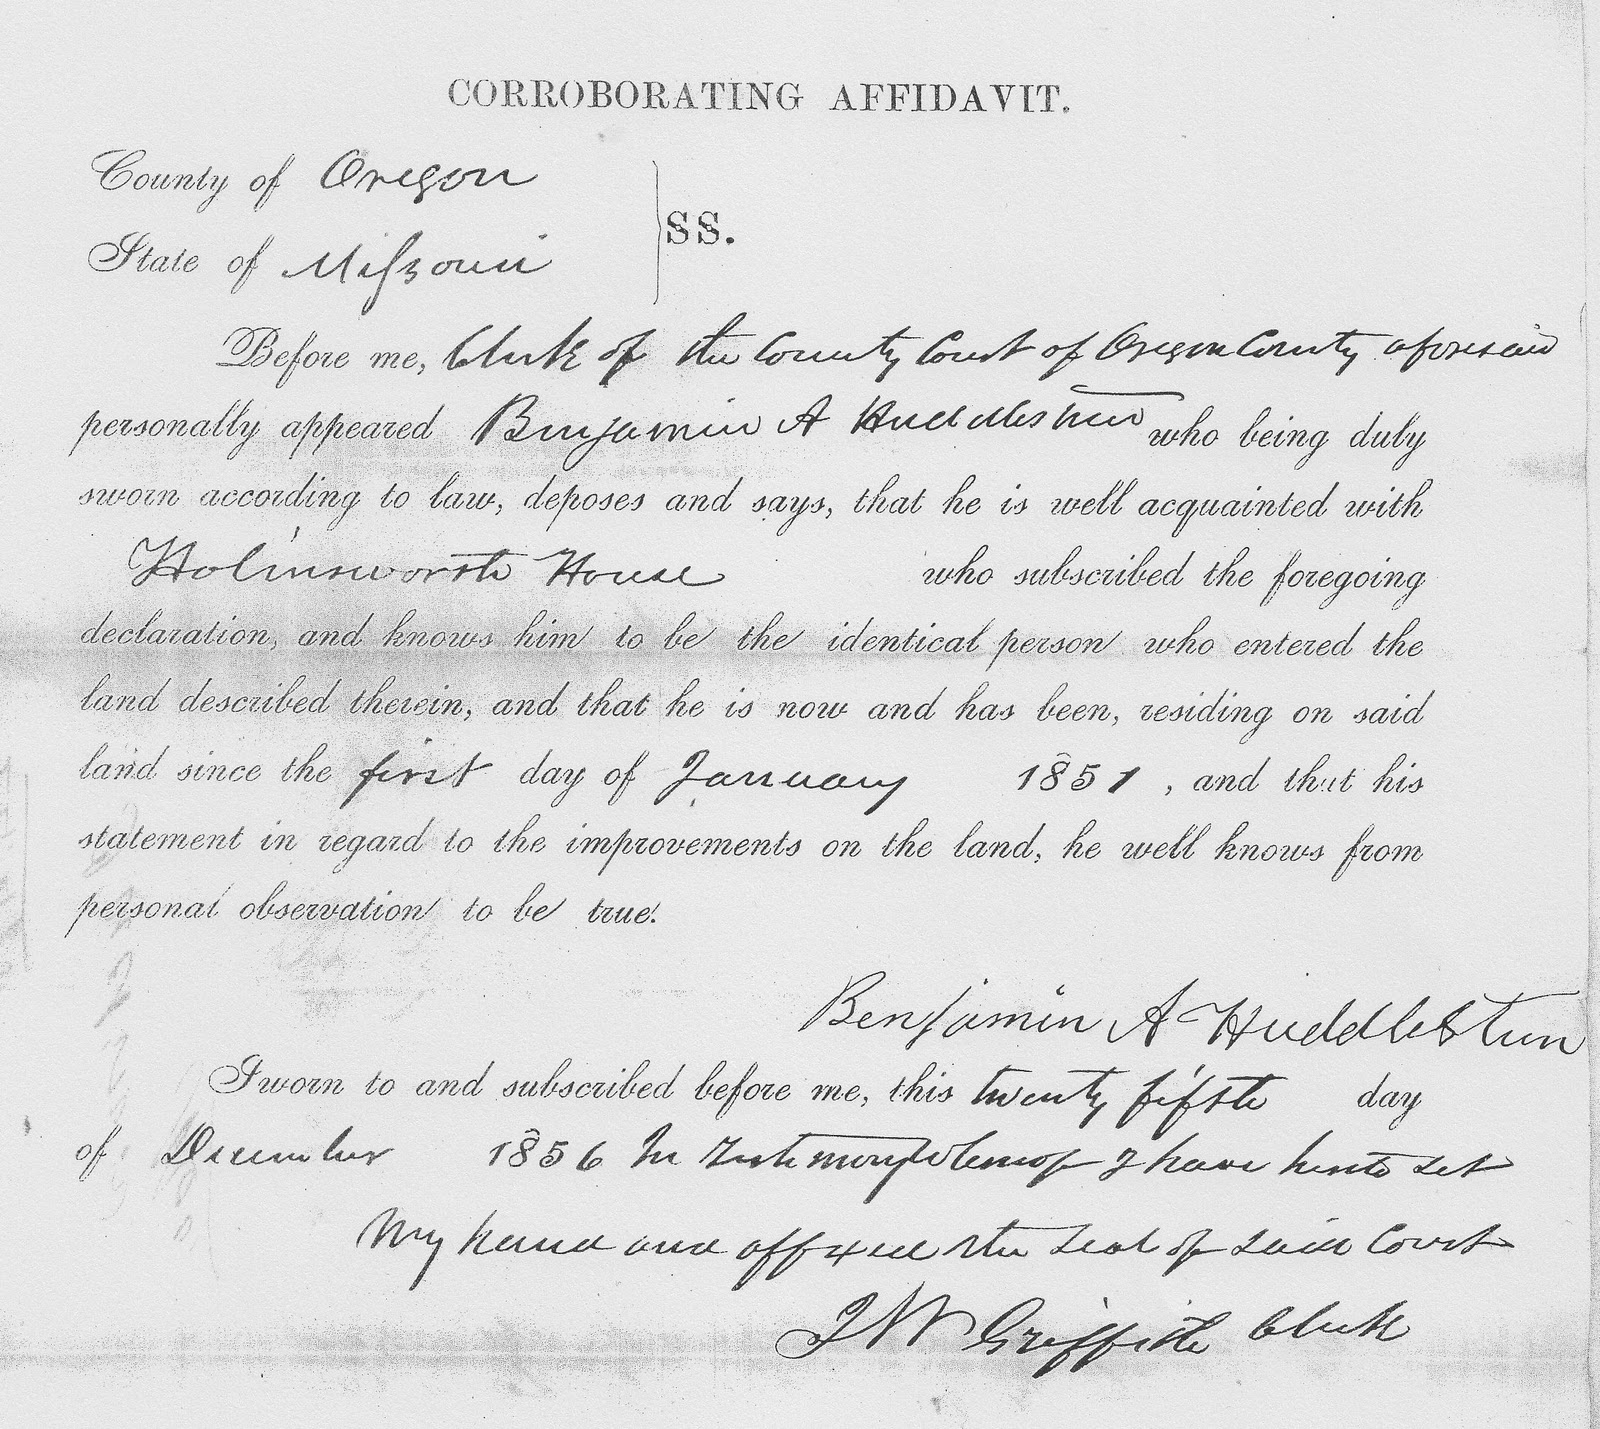 CORROBORATING AFFIDAVIT.
County of Oregon
State of Missouri
SS.
Before me, Clerk of the County Court of Oregon County aforesaid
personally appeared Benjamin A Huddleston who being duly
sworn according to law, deposes and says, that he is well acquainted with
Holinsworth House who subscribed the foregoing
declaration, and knows him to be the identical person who entered the
land described therein, and that he is now and has been, residing on said
land since the first day of January 1851, and that his
statement in regard to the improvements on the land, he well knows from
personal observation to be true.
Benjamin A Huddlestun
Sworn to and subscribed before me, this twenty fifth day
of December 1856 In Testimony whereof I have hereto set
My hand and affixed the seal of said Court
J W Griffith Clerk